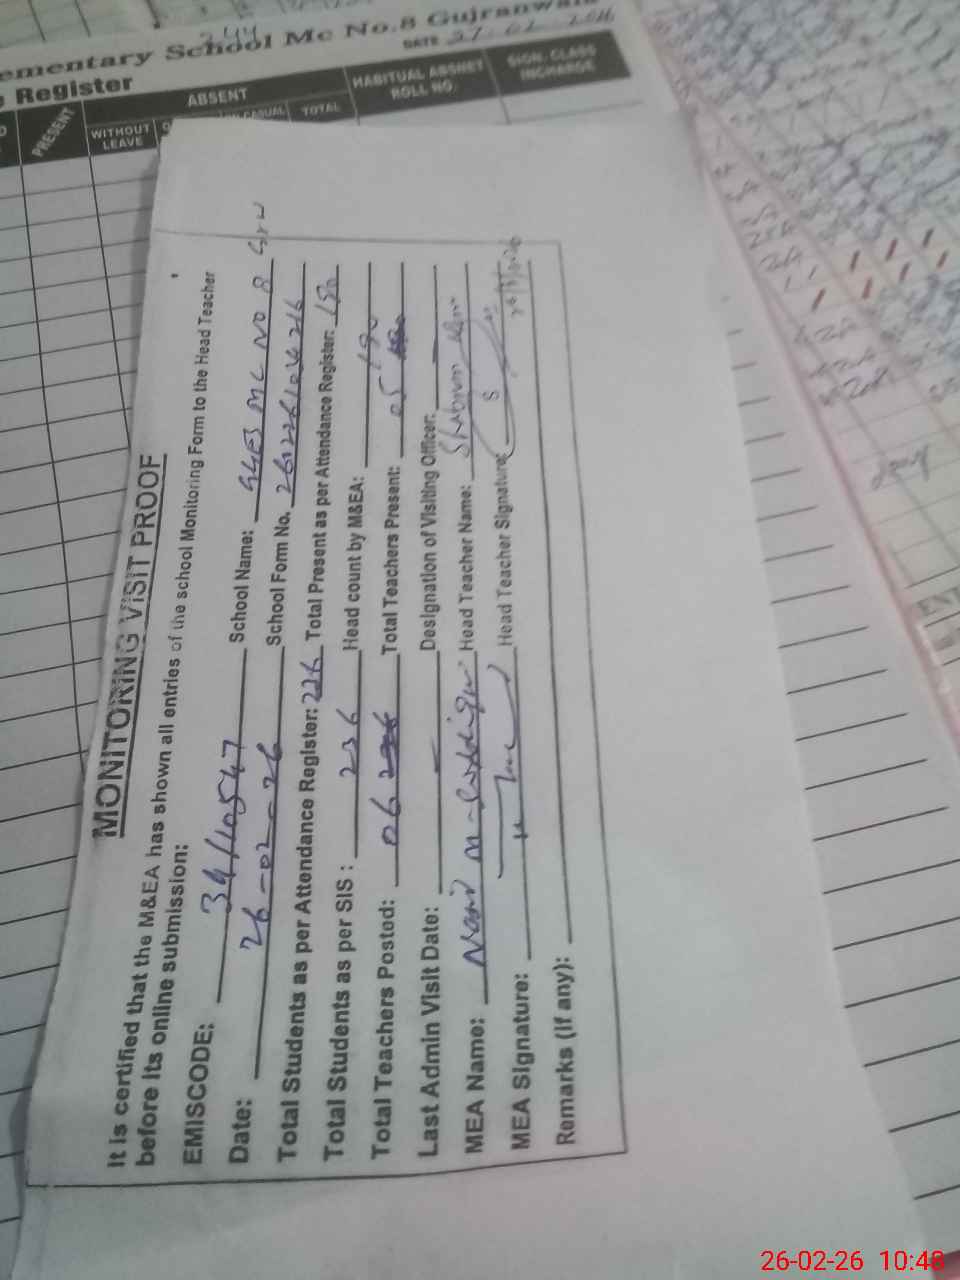 ementary School Mc No.8 Gujranwala
244
DATE 27-02-2026
Register
PRESENT
ABSENT
WITHOUT LEAVE
CASUAL
TOTAL
HABITUAL ABSNET ROLL NO.
SIGN. CLASS INCHARGE
MONITORING VISIT PROOF
It is certified that the M&EA has shown all entries of the school Monitoring Form to the Head Teacher
before its online submission:
EMISCODE: 34110547 School Name: GGES MC NO 8 GRW
Date: 26-02-26 School Form No.
Total Students as per Attendance Register: 226 Total Present as per Attendance Register: 190
Total Students as per SIS : 236 Head count by M&EA: 190
Total Teachers Posted: 06 Total Teachers Present: 05
Last Admin Visit Date: — Designation of Visiting Officer: —
MEA Name: Head Teacher Name: Shabnam
MEA Signature: Head Teacher Signature:
Remarks (If any):
26-02-26 10:48